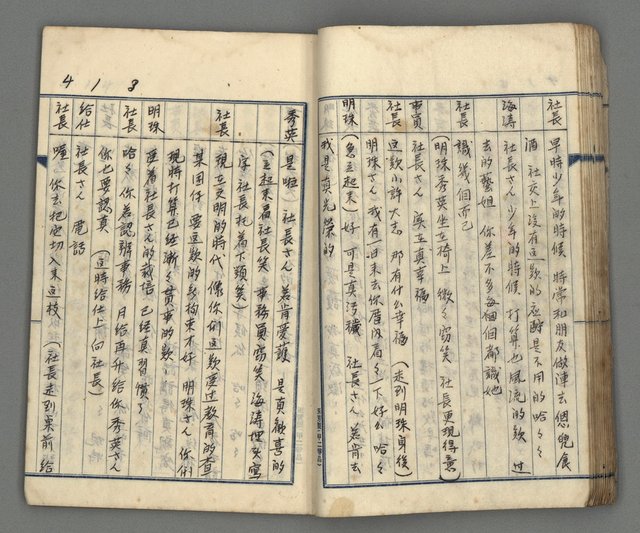 社長 早時少年的時候 時常和朋友做陣去
酒 社交上沒有這款的應酬是不用的哈々々
海濤 社長さん少年的時候 打算也風流的款 过
去的藝妲 你差不多每個個都識她
社長 識幾個而已
(明珠秀英坐在椅上 微々窃笑 社長更現得意)
事員 社長さん 实在真幸福
社長 這款小許大志 那有什么幸福 (走到明珠身後)
明珠さん 我有一日來去你厝汲看々一下好么 哈々
明珠 (急立起來) 好 可是真污穢 社長さん 若肯去
我是真光榮的
秀英 是啦 社長さん 若肯愛護 是真歡喜的
(立起來看社長笑 事務員窃笑 海濤埋头寫
字 社長托着下頦笑)
社長 現在文明的時代 像你們這款受过教育的查
某囝仔 要這款的拘束不好 明珠さん 你們
現時打算已經漸々貫事的款
明珠 蓮着社長さん的栽培 已經真習慣了
社長 哈々 你若認辨事務 月給再升給你 秀英さん
你也要認真 (這時給仕上向社長)
給仕 社長さん 電話
社長 喔 你去把它切入來這枝 (社長走到桌前 給
4 1 8